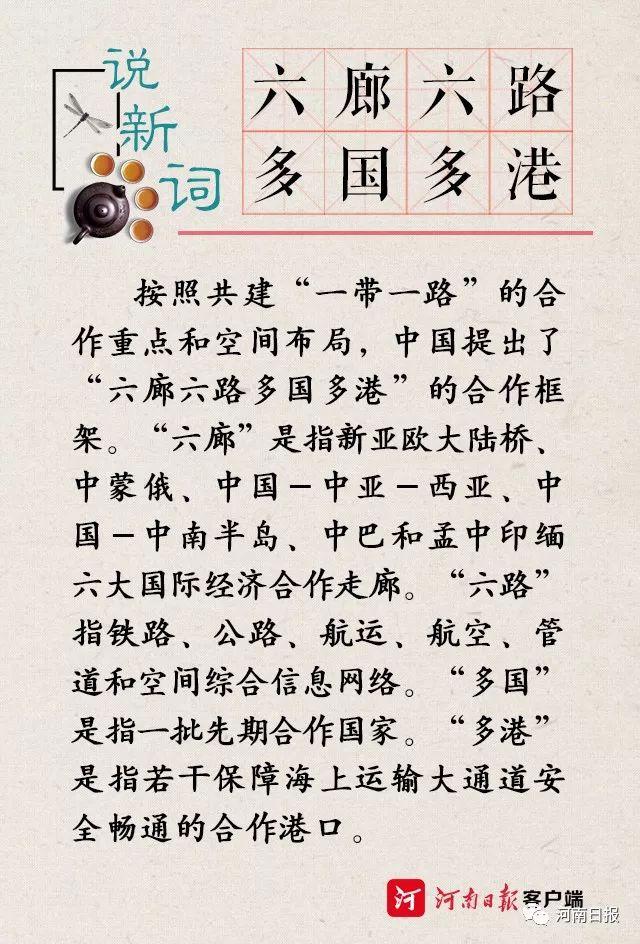 说新词
六廊六路
多国多港
按照共建“一带一路”的合
作重点和空间布局，中国提出了
“六廊六路多国多港”的合作框
架。“六廊”是指新亚欧大陆桥、
中蒙俄、中国－中亚－西亚、中
国－中南半岛、中巴和孟中印缅
六大国际经济合作走廊。“六路”
指铁路、公路、航运、航空、管
道和空间综合信息网络。“多国”
是指一批先期合作国家。“多港”
是指若干保障海上运输大通道安
全畅通的合作港口。
河 河南日报客户端
河南日报